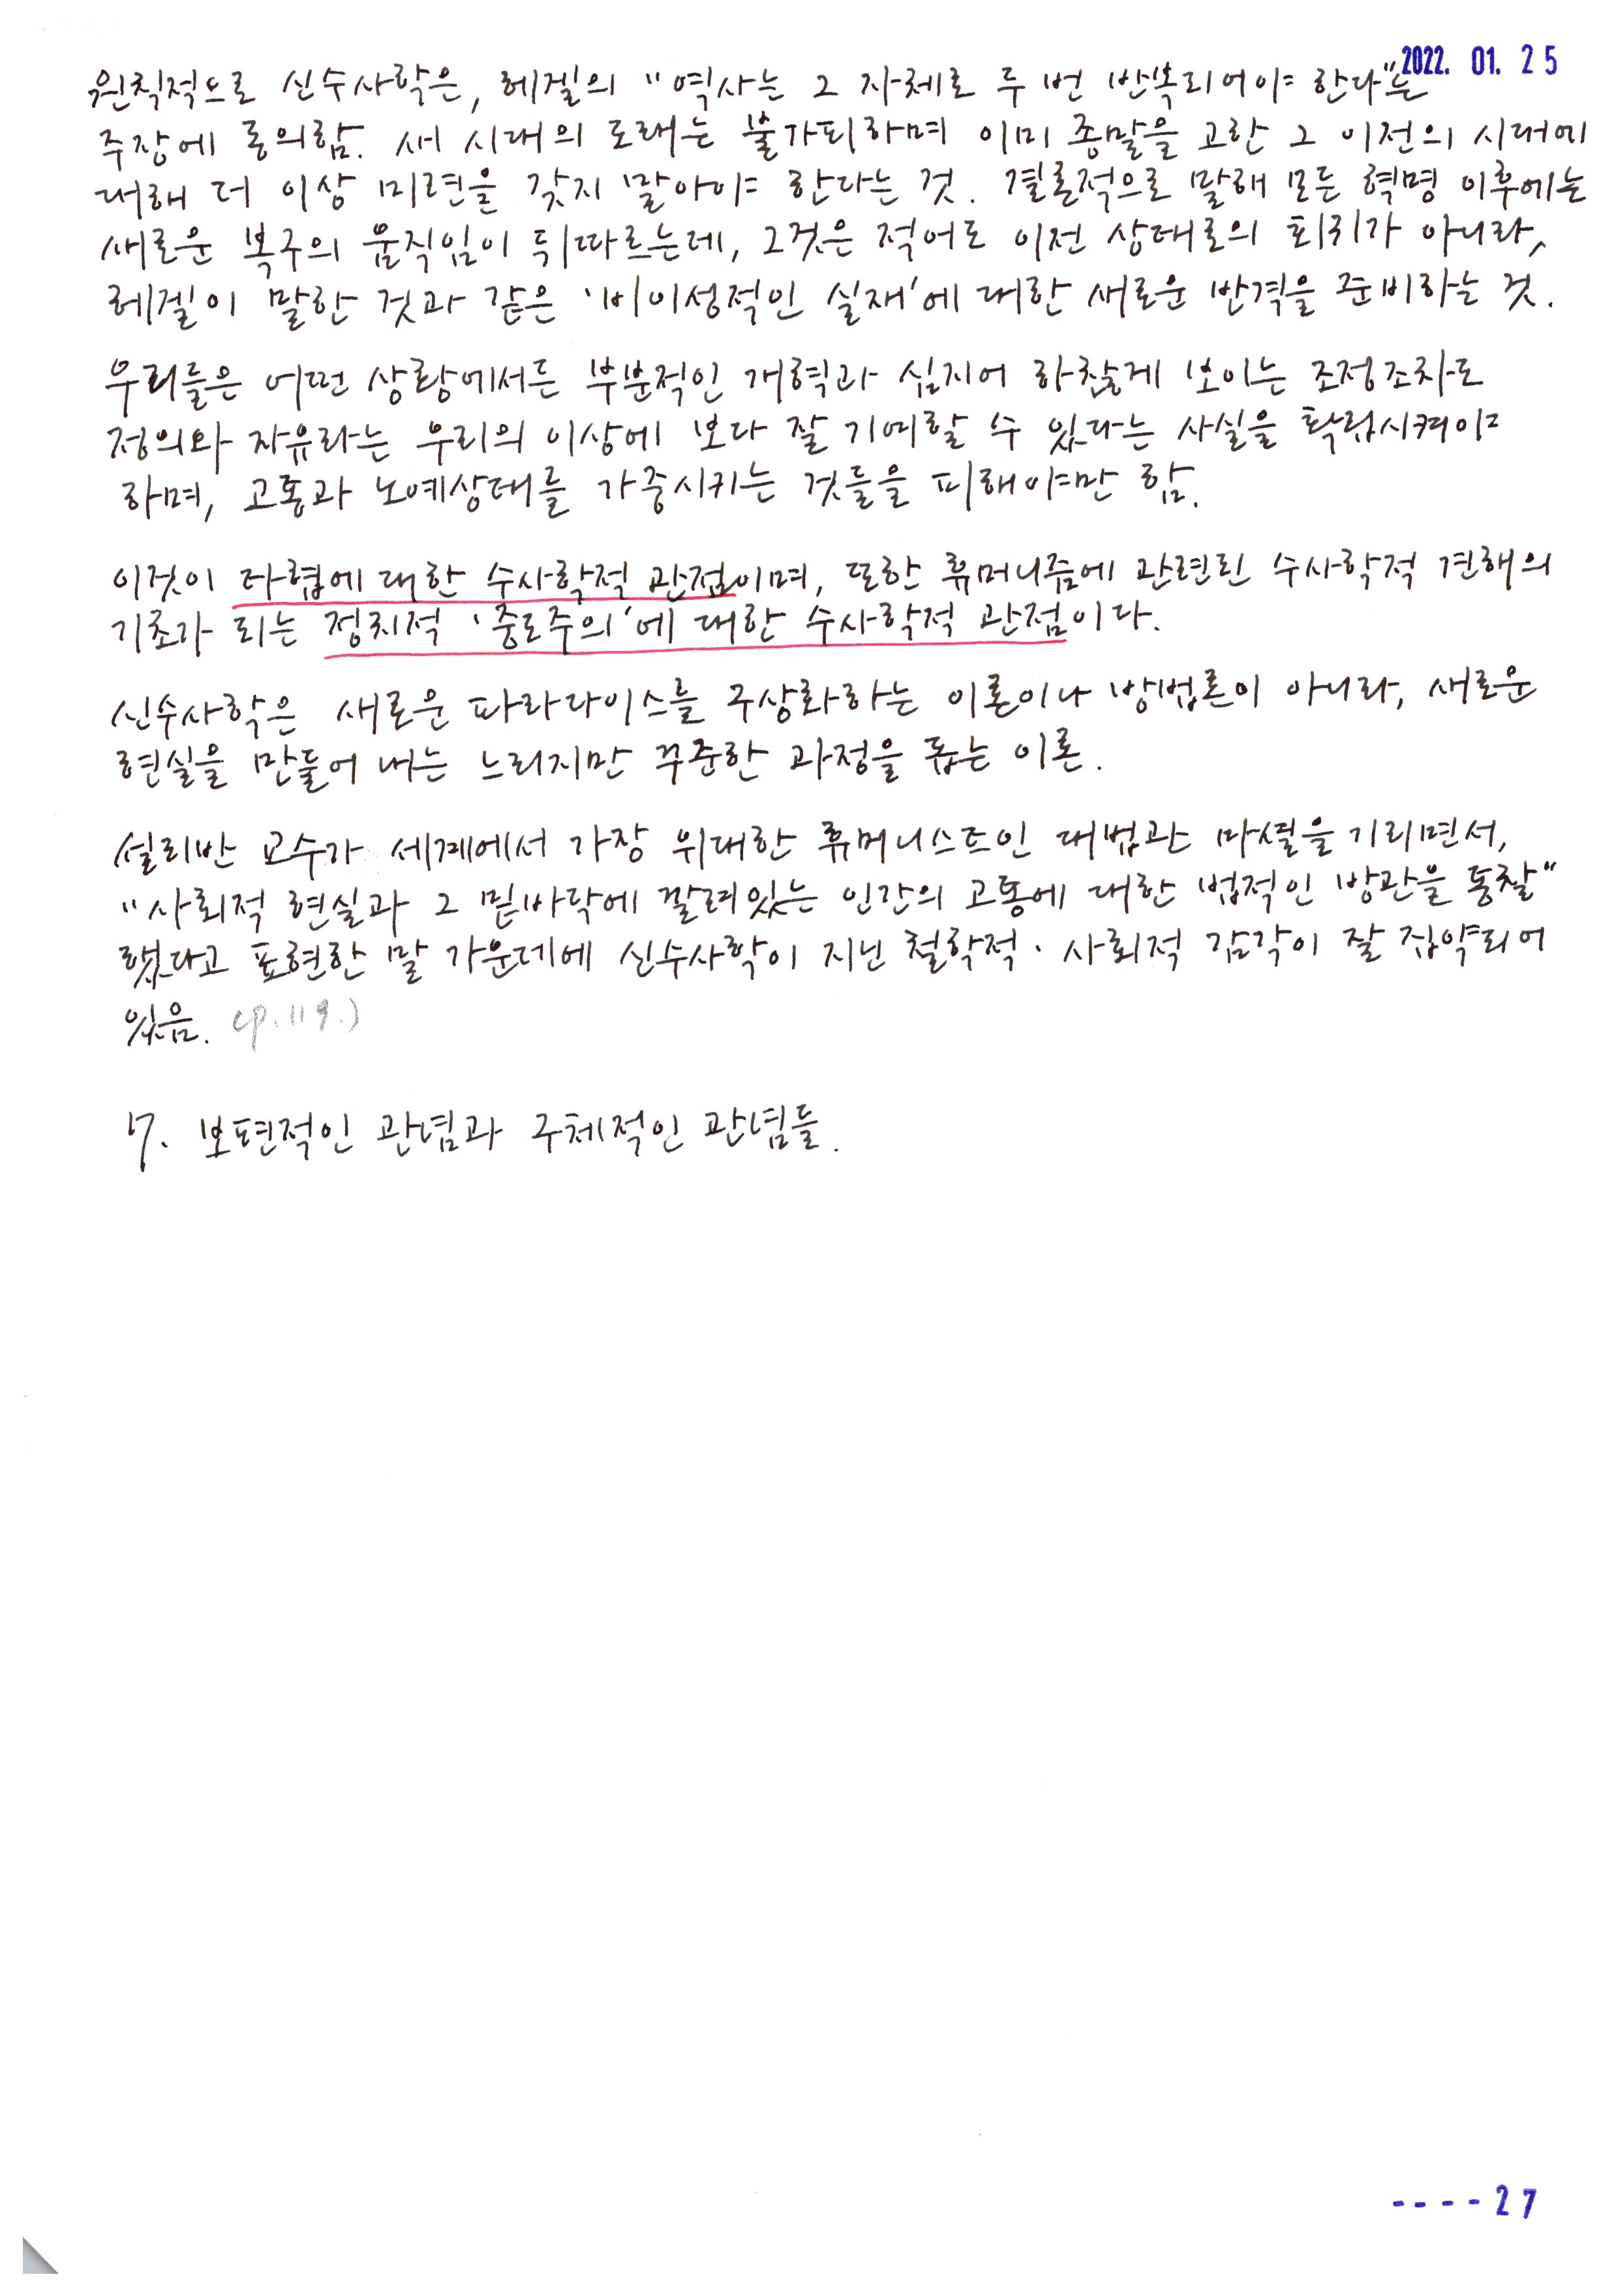 2022. 01. 25
원칙적으로 신수사학은, 헤겔의 "역사는 그 자체로 두 번 반복되어야 한다"는
주장에 동의함. 새 시대의 도래는 불가피하며 이미 종말을 고한 그 이전의 시대에
대해 더 이상 미련을 갖지 말아야 한다는 것. 결론적으로 말해 모든 혁명 이후에는
새로운 복구의 움직임이 뒤따르는데, 그것은 적어도 이전 상태로의 회귀가 아니라,
헤겔이 말한 것과 같은 '비이성적인 실재'에 대한 새로운 반격을 준비하는 것.
우리들은 어떤 상황에서든 부분적인 개혁과 심지어 하찮게 보이는 조정조차도
정의와 자유라는 우리의 이상에 보다 잘 기여할 수 있다는 사실을 확립시켜야
하며, 고통과 노예상태를 가중시키는 것들을 피해야만 함.
이것이 타협에 대한 수사학적 관점이며, 또한 휴머니즘에 관련된 수사학적 견해의
기초가 되는 정치적 '중도주의'에 대한 수사학적 관점이다.
신수사학은 새로운 파라다이스를 구상화하는 이론이나 방법론이 아니라, 새로운
현실을 만들어 내는 느리지만 꾸준한 과정을 돕는 이론.
설리반 교수가 세계에서 가장 위대한 휴머니스트인 대법관 마셜을 기리면서,
"사회적 현실과 그 밑바닥에 깔려있는 인간의 고통에 대한 법적인 방관을 통찰"
했다고 표현한 말 가운데에 신수사학이 지닌 철학적·사회적 감각이 잘 집약되어
있음. (p.119.)
7. 보편적인 관념과 구체적인 관념들.
----27